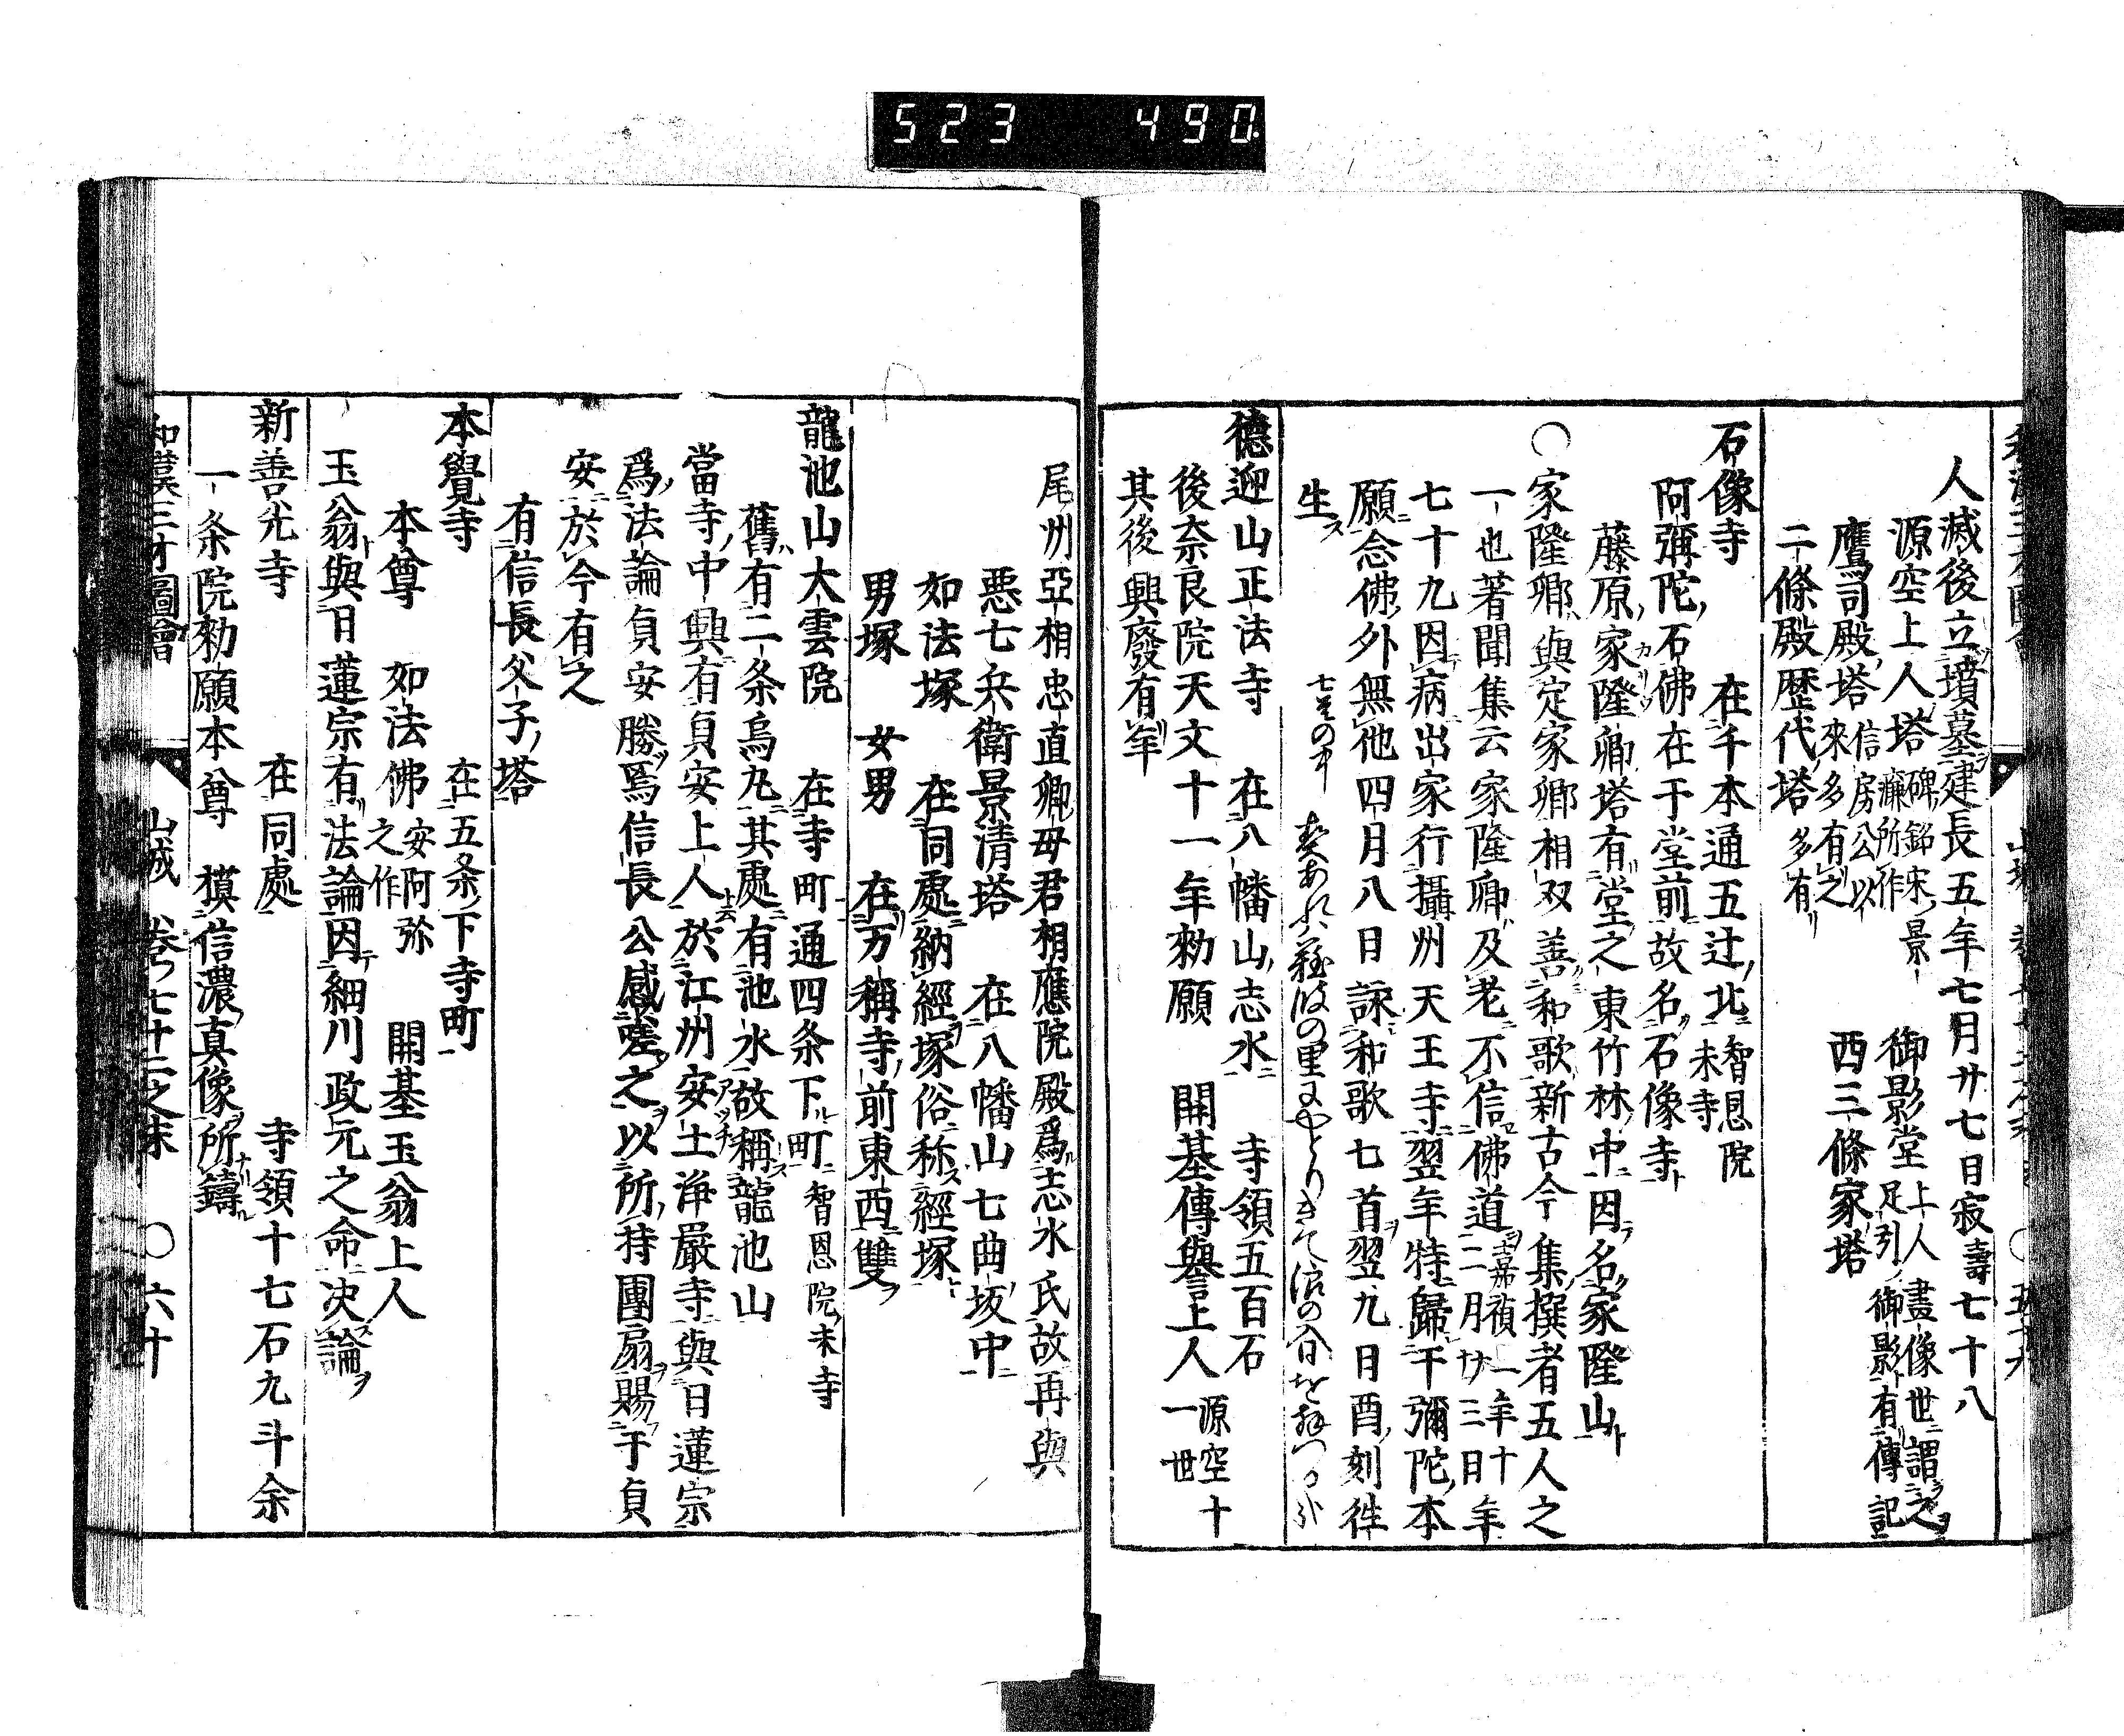 523 490
人滅後立墳墓建長五年七月廿七日寂壽七十八
源空上人塔 碑銘宋景濂所作 御影堂 上人畫像世謂之足引御影有傳記
鷹司殿塔 信房公以來多有之 西三條家塔
二條殿歴代塔 多有
石像寺 在千本通五辻北 智恩院末寺
阿彌陀石佛在于堂前故名石像寺
藤原家隆卿塔有堂之東竹林中因名家隆山
〇家隆卿與定家卿相双善和歌新古今集撰者五人之
一也著聞集云家隆卿及老不信佛道 嘉禎二年十二月廿三日年
七十九因病出家行攝州天王寺翌年特歸于彌陀本
願念佛外無他四月八日詠和歌七首翌九日酉刻往
生ス
七その中 契あれハ難波の里にやとりきて浪の入日を拝つるかな
德迎山正法寺 在八幡山志水 寺領五百石
後奈良院天文十一年勅願 開基傳譽上人 源空十一世
其後興廢有年
尾州亞相忠直卿母君相應院殿爲志水氏故再與
惡七兵衛景清塔 在八幡山七曲坂中
如法塚 在同處納經塚俗称經塚
男塚 女男 在万稱寺前東西雙
龍池山大雲院 在寺町通四条下町 智恩院末寺
舊有二条烏丸其處有池水故稱龍池山
當寺中興有貞安上人於江州安土淨嚴寺與日蓮宗
爲法論貞安勝焉信長公感嗟之以所持團扇賜于貞
安於今有之
有信長父子塔
本覺寺 在五条下寺町
本尊 如法佛 安阿弥之作 開基玉翁上人
玉翁與日蓮宗有法論因細川政元之命決論
新善光寺 在同處 寺領十七石九斗余
一条院勅願本尊 摸信濃真像所鑄
和漢三才圖會 山城 卷七十二之末 〇六十